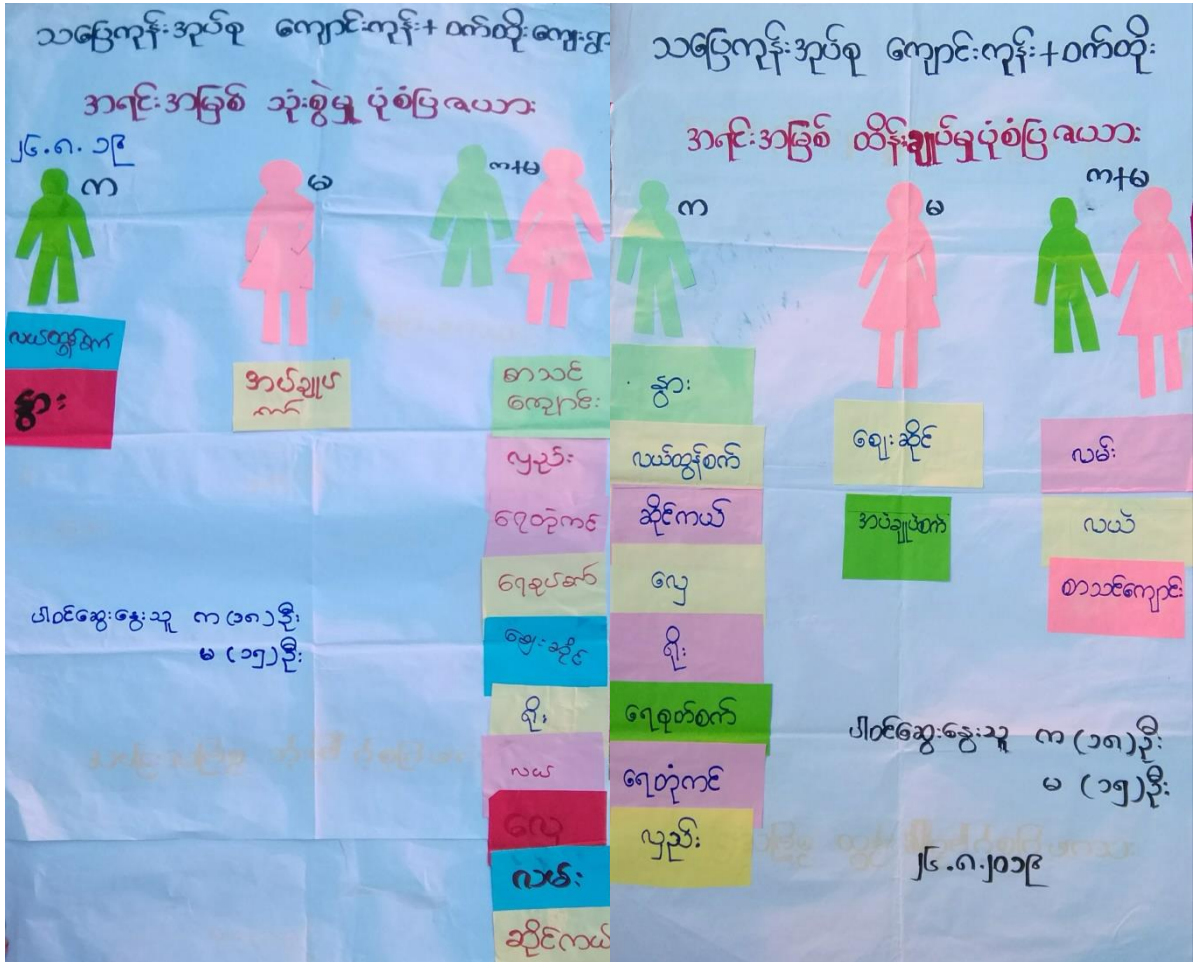 သပြေကုန်းအုပ်စု ကျောင်းကုန်း+ ဝက်တိုးကျေးရွာ
အရင်းအမြစ် သုံးစွဲမှု ပုံစံပြဇယား
၂၆.၈.၁၉
က
မ
က+မ
လယ်ထွန်စက်
နွား
အပ်ချုပ်
စက်
စာသင်
ကျောင်း
လှည်း
ရေတုံကင်
ရေစုပ်စက်
ဈေးဆိုင်
ရိုး
လယ်
လှေ
လမ်း
ဆိုင်ကယ်
ပါဝင်ဆွေးနွေးသူ က (၁၈) ဦး
မ (၁၅) ဦး
သပြေကုန်းအုပ်စု ကျောင်းကုန်း+ဝက်တိုး
အရင်းအမြစ် ထိန်းချုပ်မှုပုံစံပြဇယား
က
မ
က+မ
နွား
လယ်ထွန်စက်
ဆိုင်ကယ်
လှေ
ရိုး
ရေစုတ်စက်
ရေတုံကင်
လှည်း
ဈေးဆိုင်
အပ်ချုပ်စက်
လမ်း
လယ်
စာသင်ကျောင်း
ပါဝင်ဆွေးနွေးသူ က (၁၈) ဦး
မ (၁၅) ဦး
၂၆.၈.၂၀၁၉